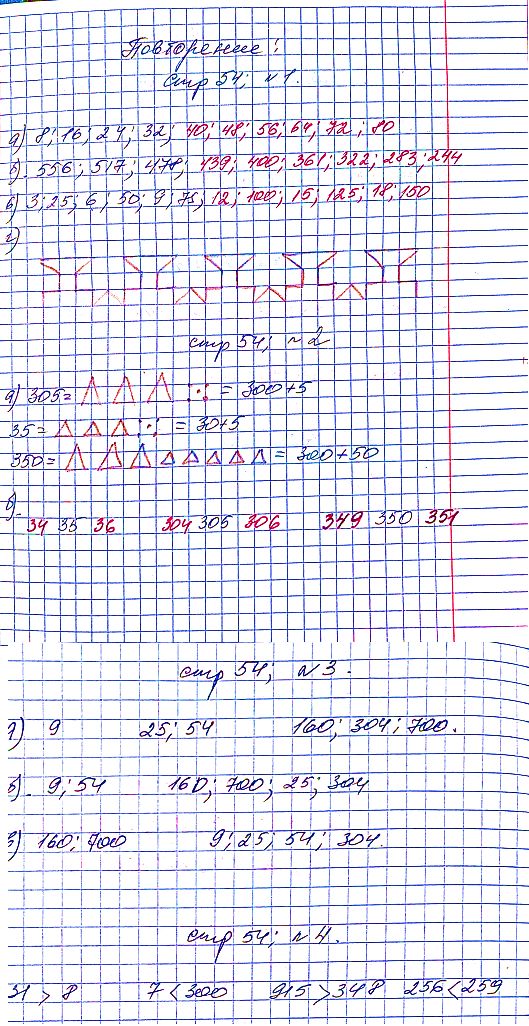 Повторение:
стр 54; №1.
а) 8; 16; 24; 32; 40; 48; 56; 64; 72; 80
б) 556; 517; 478; 439; 400; 361; 322; 283; 244
в) 3; 25; 6; 50; 9; 75; 12; 100; 15; 125; 18; 150
г)
стр 54; №2
а) 305 = = 300+5
35 = = 30+5
350 = = 300+50
б)
34 35 36 304 305 306 349 350 351
стр 54; №3.
9 25; 54 160; 304; 700.
б) 9; 54 160; 700; 25; 304
160; 700 9; 25; 54; 304.
стр 54; №4.
31 > 8 7 < 300 915 > 348 256 < 259